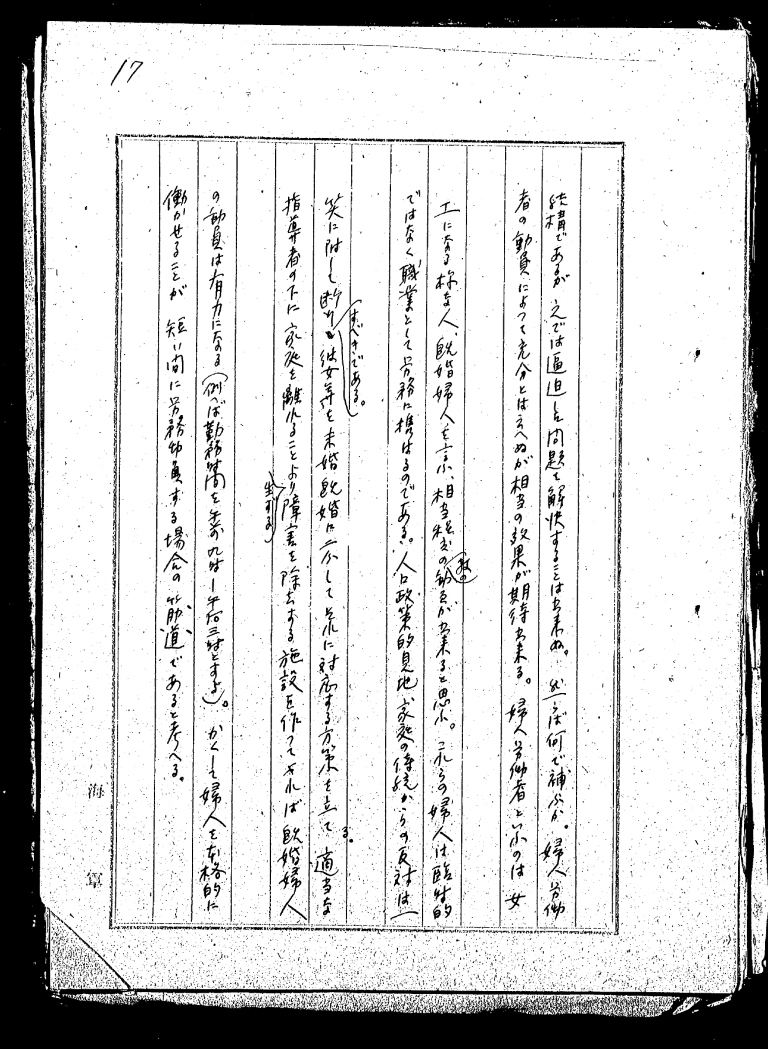 17
結構であるが之では逼迫した問題を解決することは出来ぬ。然らば何で補ふか。婦人労働
者の動員によつて充分とは云へぬが相当の効果が期待出来る。婦人労働者といふのは女
工になる様な人、既婚婦人を言ふ、相当程度の数の動員が出来ると思ふ。これらの婦人は臨時的
ではなく職業として労務に携はるのである。人口政策的見地、家庭の伝統からの反対は一
笑に附し断りすべきである。彼女等を未婚既婚に二分してそれに対応する方策を立てる。適当な
指導者の下に家庭を離れることより生ずる障害を除去する施設を作つてやれば既婚婦人
の動員は有力になる(例へば勤務時間を午前九時―午后三時とする)。かくして婦人を本格的に
働かせることが短い間に労務動員する場合の筋道であると考へる。
海軍